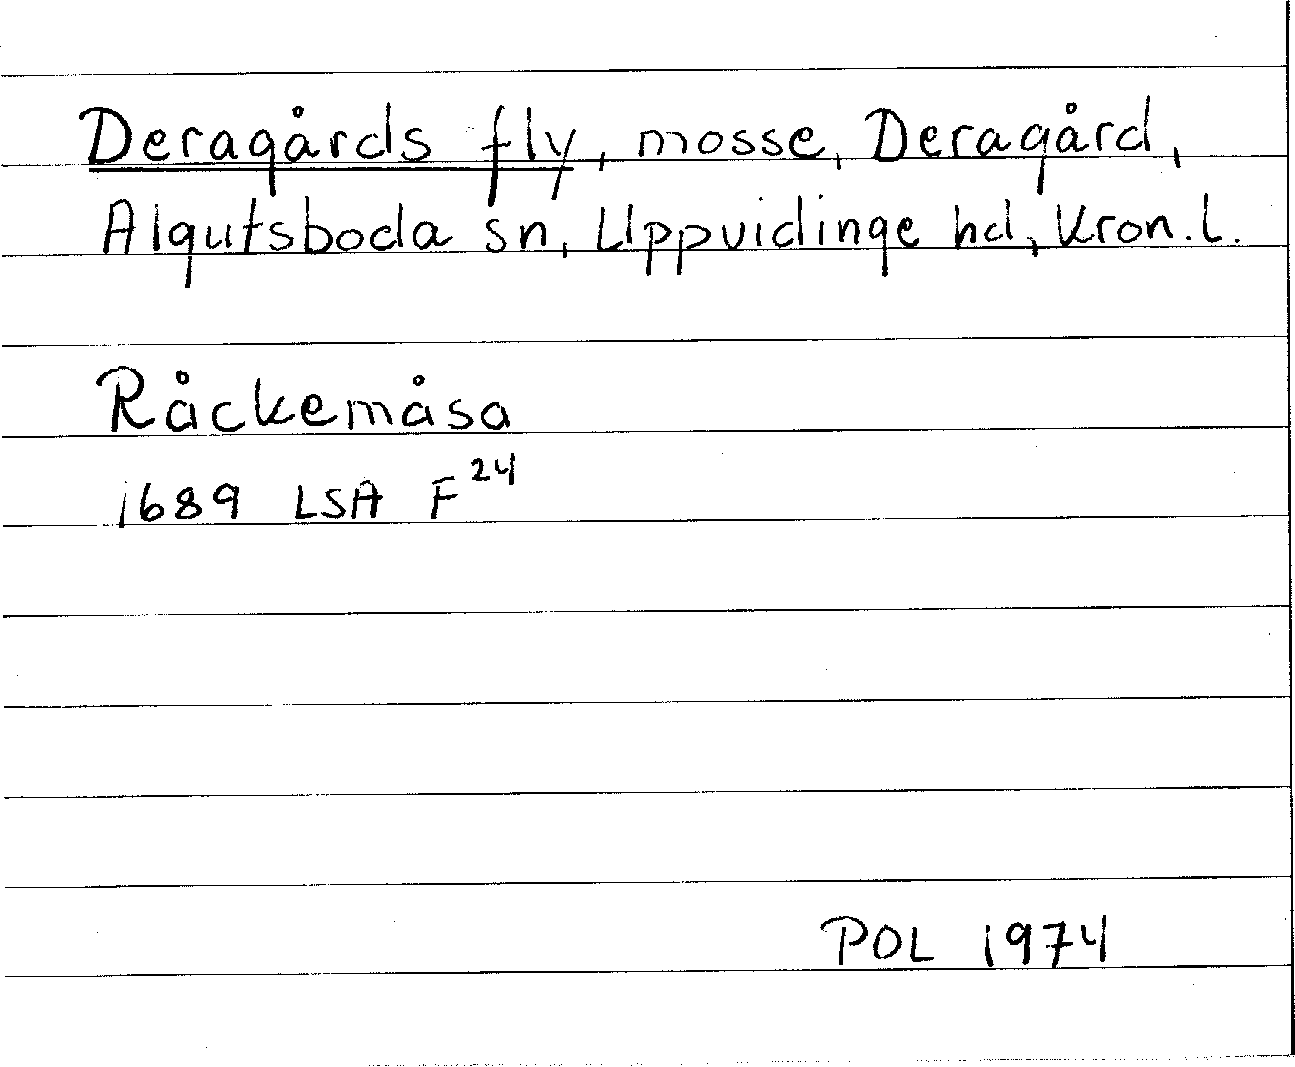 Deragårds fly, mosse, Deragård,
Algutsboda sn, Uppvidinge hd, Kron. l.
Råckemåsa
1689 LSA F24
POL 1974